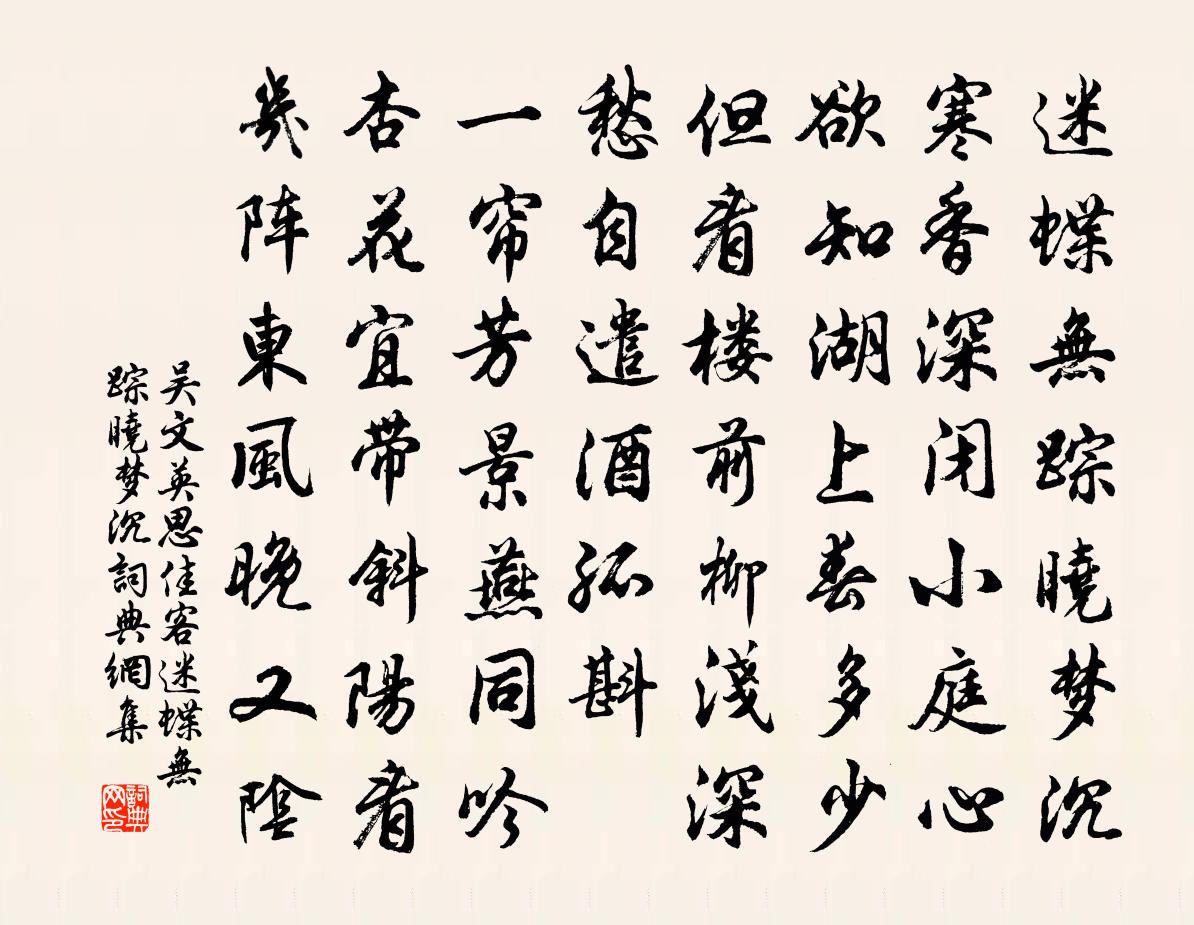 迷蝶無踪曉梦沉
寒香深闭小庭心
欲知湖上春多少
但看楼前柳淺深
愁自遣酒孤斟
一帘芳景燕同吟
杏花宜带斜陽看
幾阵東風晚又陰
吴文英思佳客迷蝶無
踪曉梦沉詞典網集
詞典网印